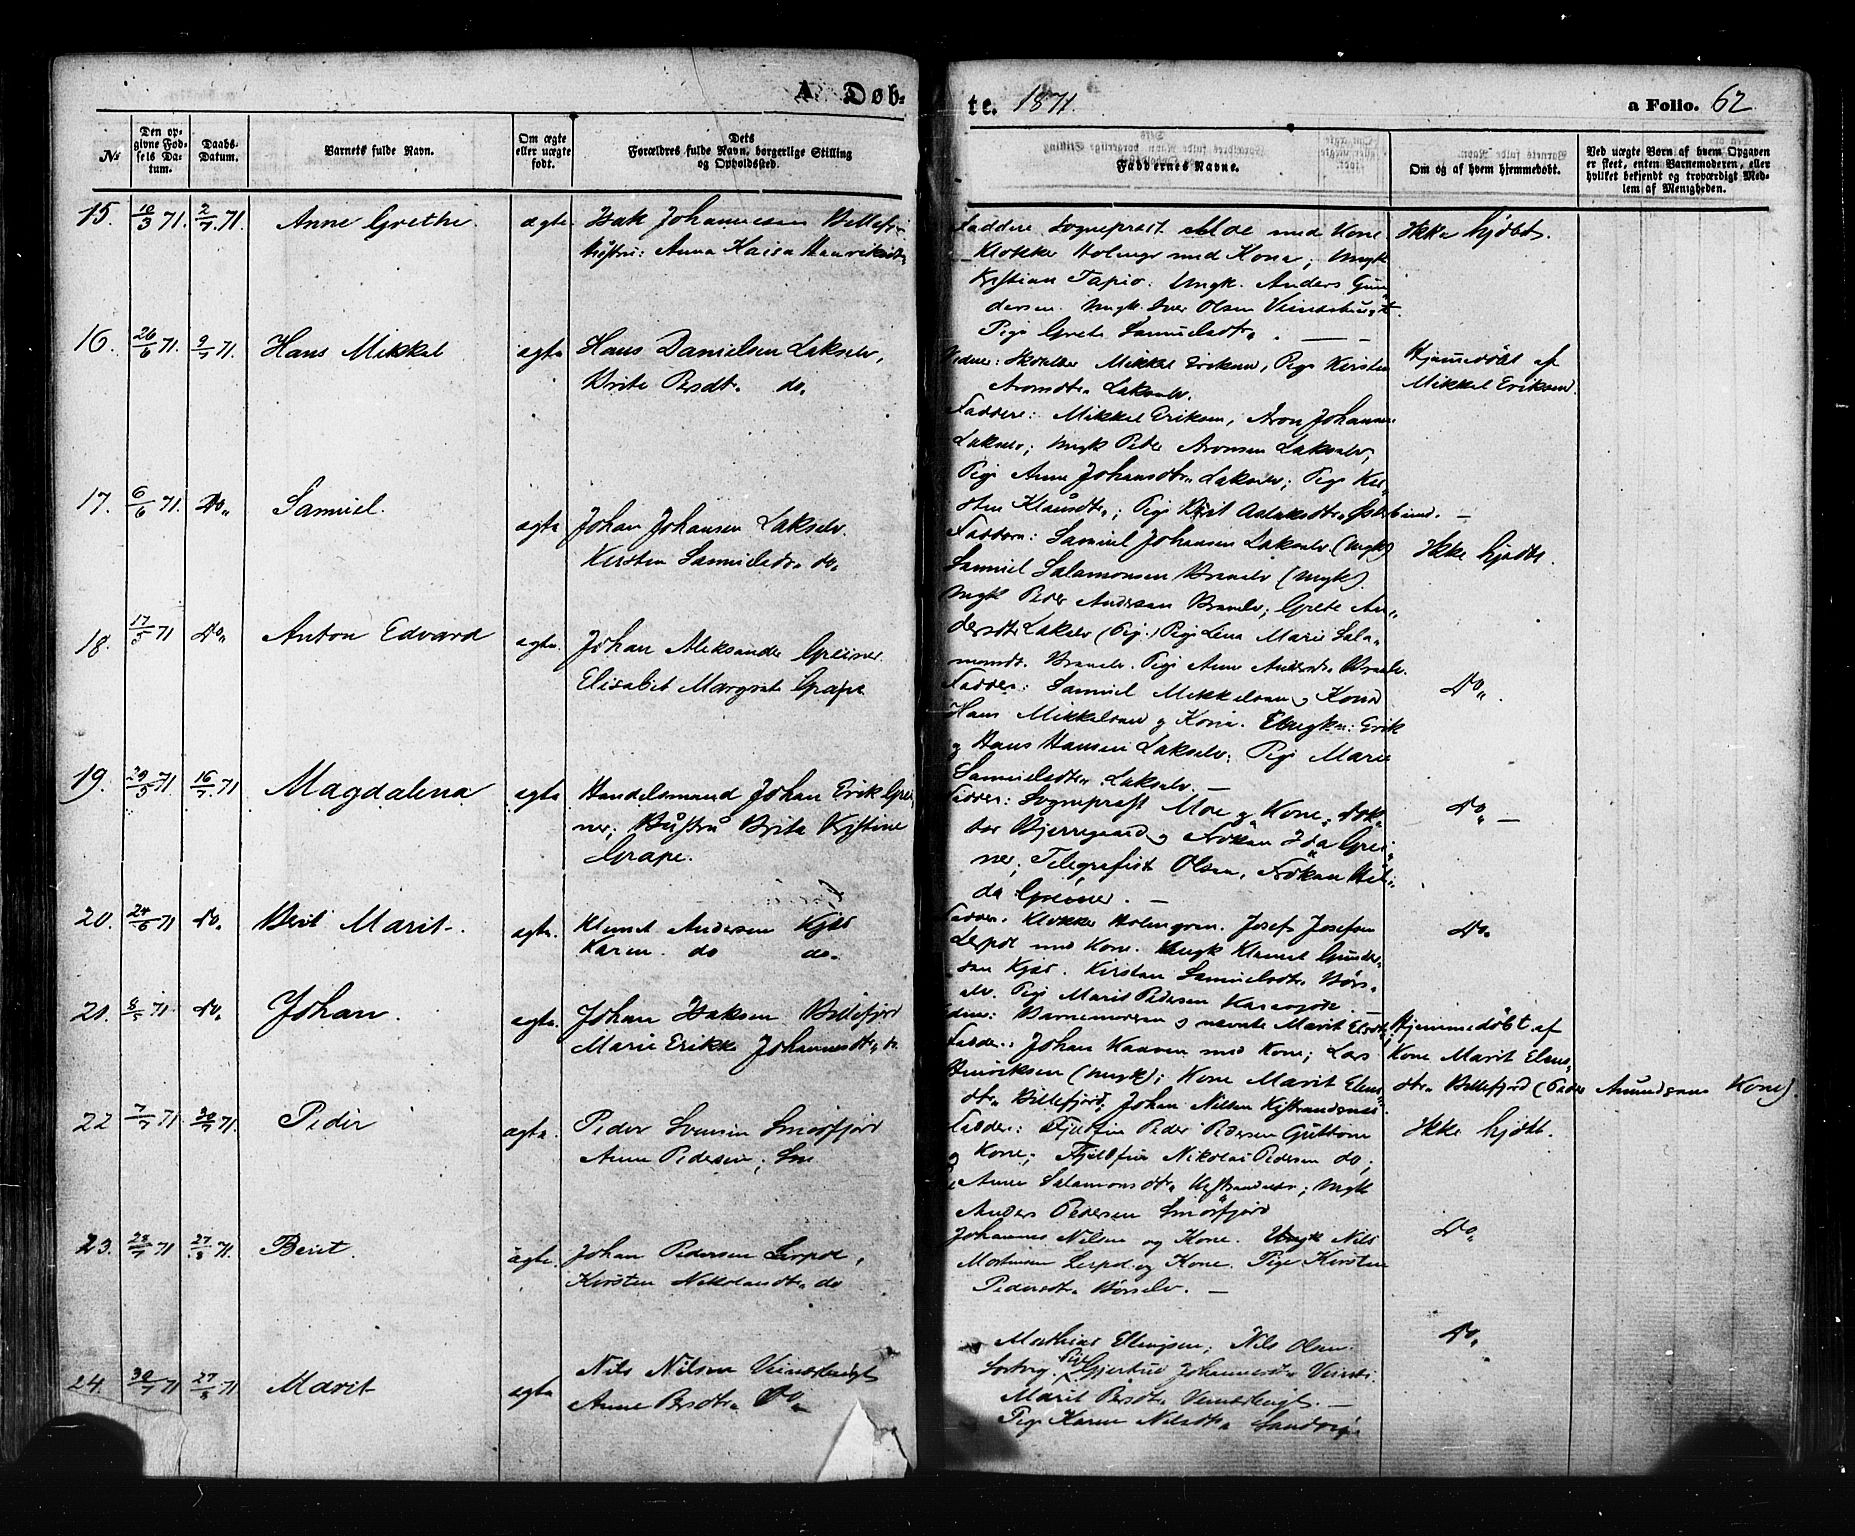 A. Døb-
te. 1871. a Folio. 62
No
Den op-
givne Fød-
sels Da-
tum.
Daabs-
Datum.
Barnets fulde Navn.
Om ægte
eller uægte
født.
Dets
Forældres fulde Navn, borgerlige Stilling
og Opholdssted.
Faddernes Navne.
Om og af hvem hjemmedøbt.
Ved uægte Børn af hvem Opgaven
er skeet, enten Barnemoderen, eller
hvilket bekjendt og troværdigt Med-
lem af Menigheden.
15. 10/3 71. 2/7 71. Anne Grethe. ægte Isak Johannesen Billefjor
Hustru: Anna Kaisa Henriksdtr
Faddere Sognepræst Moe med Kone
Klokker Holmgr med Kone; Ungk
Kristian Tapio. Ungk. Anders Gun-
dersen. Ungk. Iver Olsen Veinesbugt
Pige Grete Samuelsdtr.
Ikke hjdbt.
16. 26/6 71. 9/7 71. Hans Mikkel ægte Hans Danielsen Lakselv,
Brite Persdtr do.
Mikkel Eriksen, Pige Kirsten
Aronsdtr Lakselv.
Faddere: Mikkel Eriksen, Aron Johannes
Lakselv; Ungk Peder Aronsen Lakselv,
Pige Anne Johansdtr Lakselv; Pige Kir-
sten Klausdtr; Pige Berit Østerbund.
Hjemmedøbt af
Mikkel Eriksen.
17. 6/6 71. Do. Samuel. ægte Johan Johansen Lakselv.
Kirsten Samuelsdr. do.
Faddere: Samuel Johansen Lakselv (ungk)
Samuel Salamonsen Brenelv (ungk).
Ungk Peder Andersen Brenelv; Grete An-
dersdtr Lakselv (Pig.) Pige Lena Marie Sala-
monsdt. Brenelv. Pige Anne Andersdtr Brenelv.
Ikke hjdbt.
18. 17/5 71 Do. Anton Edvard ægte. Johan Aleksander Greiner.
Elisabet Margrete Grape
Fadder: Samuel Mikkelsen og Kone
Hans Mikkelsen og Kone. Ungk.: Erik
og Hans Hansen Lakselv; Pige Marie
Samuelsdtr Lakselv. —
Do.
19. 29/5 71 16/7 71 Magdalena ægte Handelsmand Johan Erik Grei-
ner; Hustru Brita Kristine
Grape.
Fadder: Sognepræst Moe og Kone; Dok-
tor Bjerregaard og Frøken Ida Grei-
ner; Telegrafist Olsen, Frøken Hil-
da Greiner. —
Do. —
20. 24/6 71 Do. Berit Marit. ægte. Klemet Andersen Kjæs
Karen do do.
Fadder. Klokker Holmgren. Josef Josefsen
Leirpol med Kone. Ungk Klemet Gunder-
sen Kjæs. Kirsten Samuelsdtr Børs-
elv. Pige Marit Pedersen
Do.
21. 8/5 71 Do. Johan. ægte. Johan Isaksen Billefjord
Marie Erikke Johannesdtr do
Barnemoderen og nævnte Marit Elensdtr
Fadder: Johan Haaven med Kone; Lars
Henriksen (ungk); Kone Marit Elens-
dtr Billefjord; Johan Nilsen Kistrandsnæs.
Hjemmedøbt af
Kone Marit Elens-
dtr Billefjord (Peder Amundsens Kone).
22 7/7 71 30/7 71. Peder ægte. Peder Svensen Smørfjord
Anne Pedersen; Sm
Fadder: Fjeldfin Peder Pedersen Guttorm
og Kone; Fjeldfin Nikolai Pedersen do;
Anne Salamonsdtr Kistrandnæs; Ungk
Anders Pedersen Smørfjord
Ikke hjdbt.
23. 28/7 71 27/8 71. Berit. ægte. Johan Pedersen Leirpol,
Kirsten Nikolaisdtr do
Johannes Nilsen og Kone. Ungk Nils
Mortensen Leirpol og Kone. Pige Kirsten
Pedersdtr Børselv. —
Do.
24. 30/7 71 27/8 71 Marit ægte Nils Nilsen Veinesbugt
Anne Persdtr Do.
Mathias Ellingsen; Nils Olsen
Pige Gjertrud Johannesdtr Veines.
Marit Persdtr Veinesbugt. —
Pige Karen Nilsdtr Sandvig
Do.